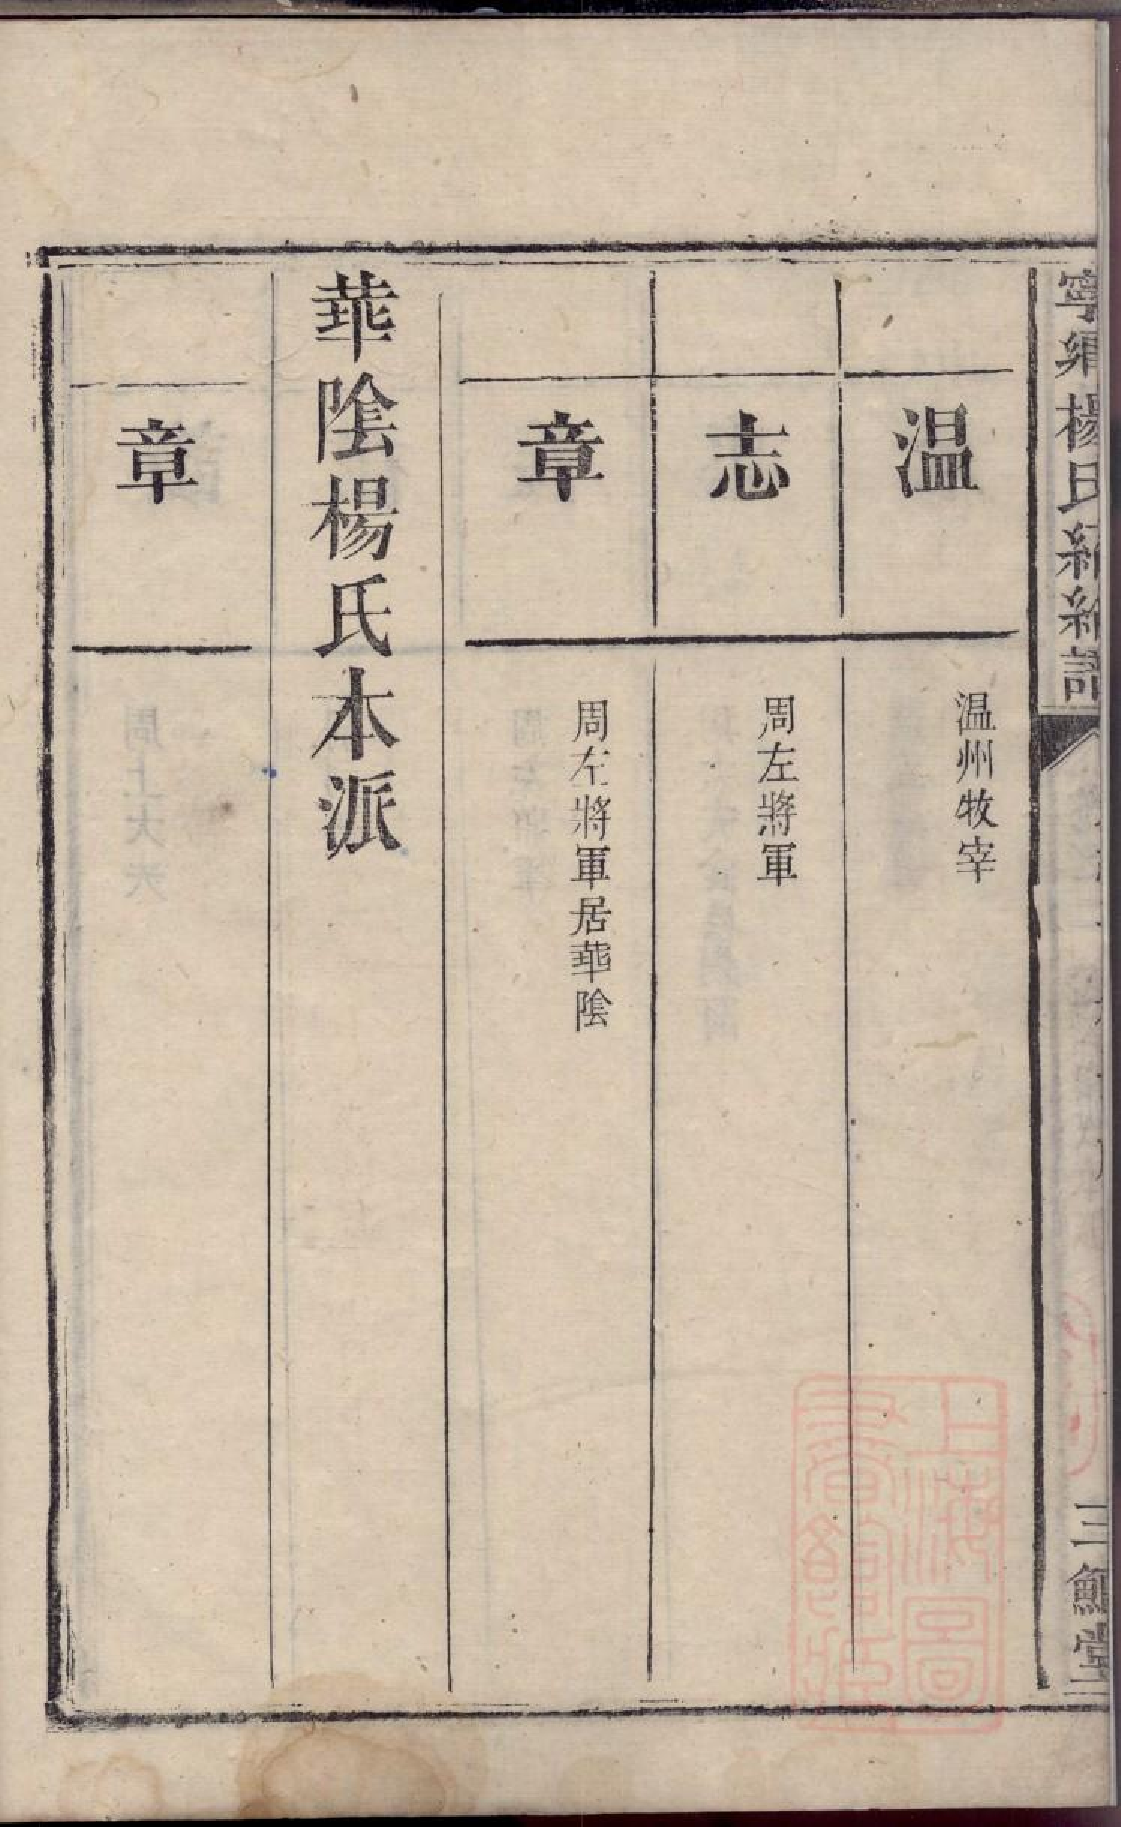 寧鄉楊氏紹紳譜
三鱣堂
温
温州牧宰
志
周左將軍
章
周左將軍居華陰
華陰楊氏本派
章
上海圖
書館藏